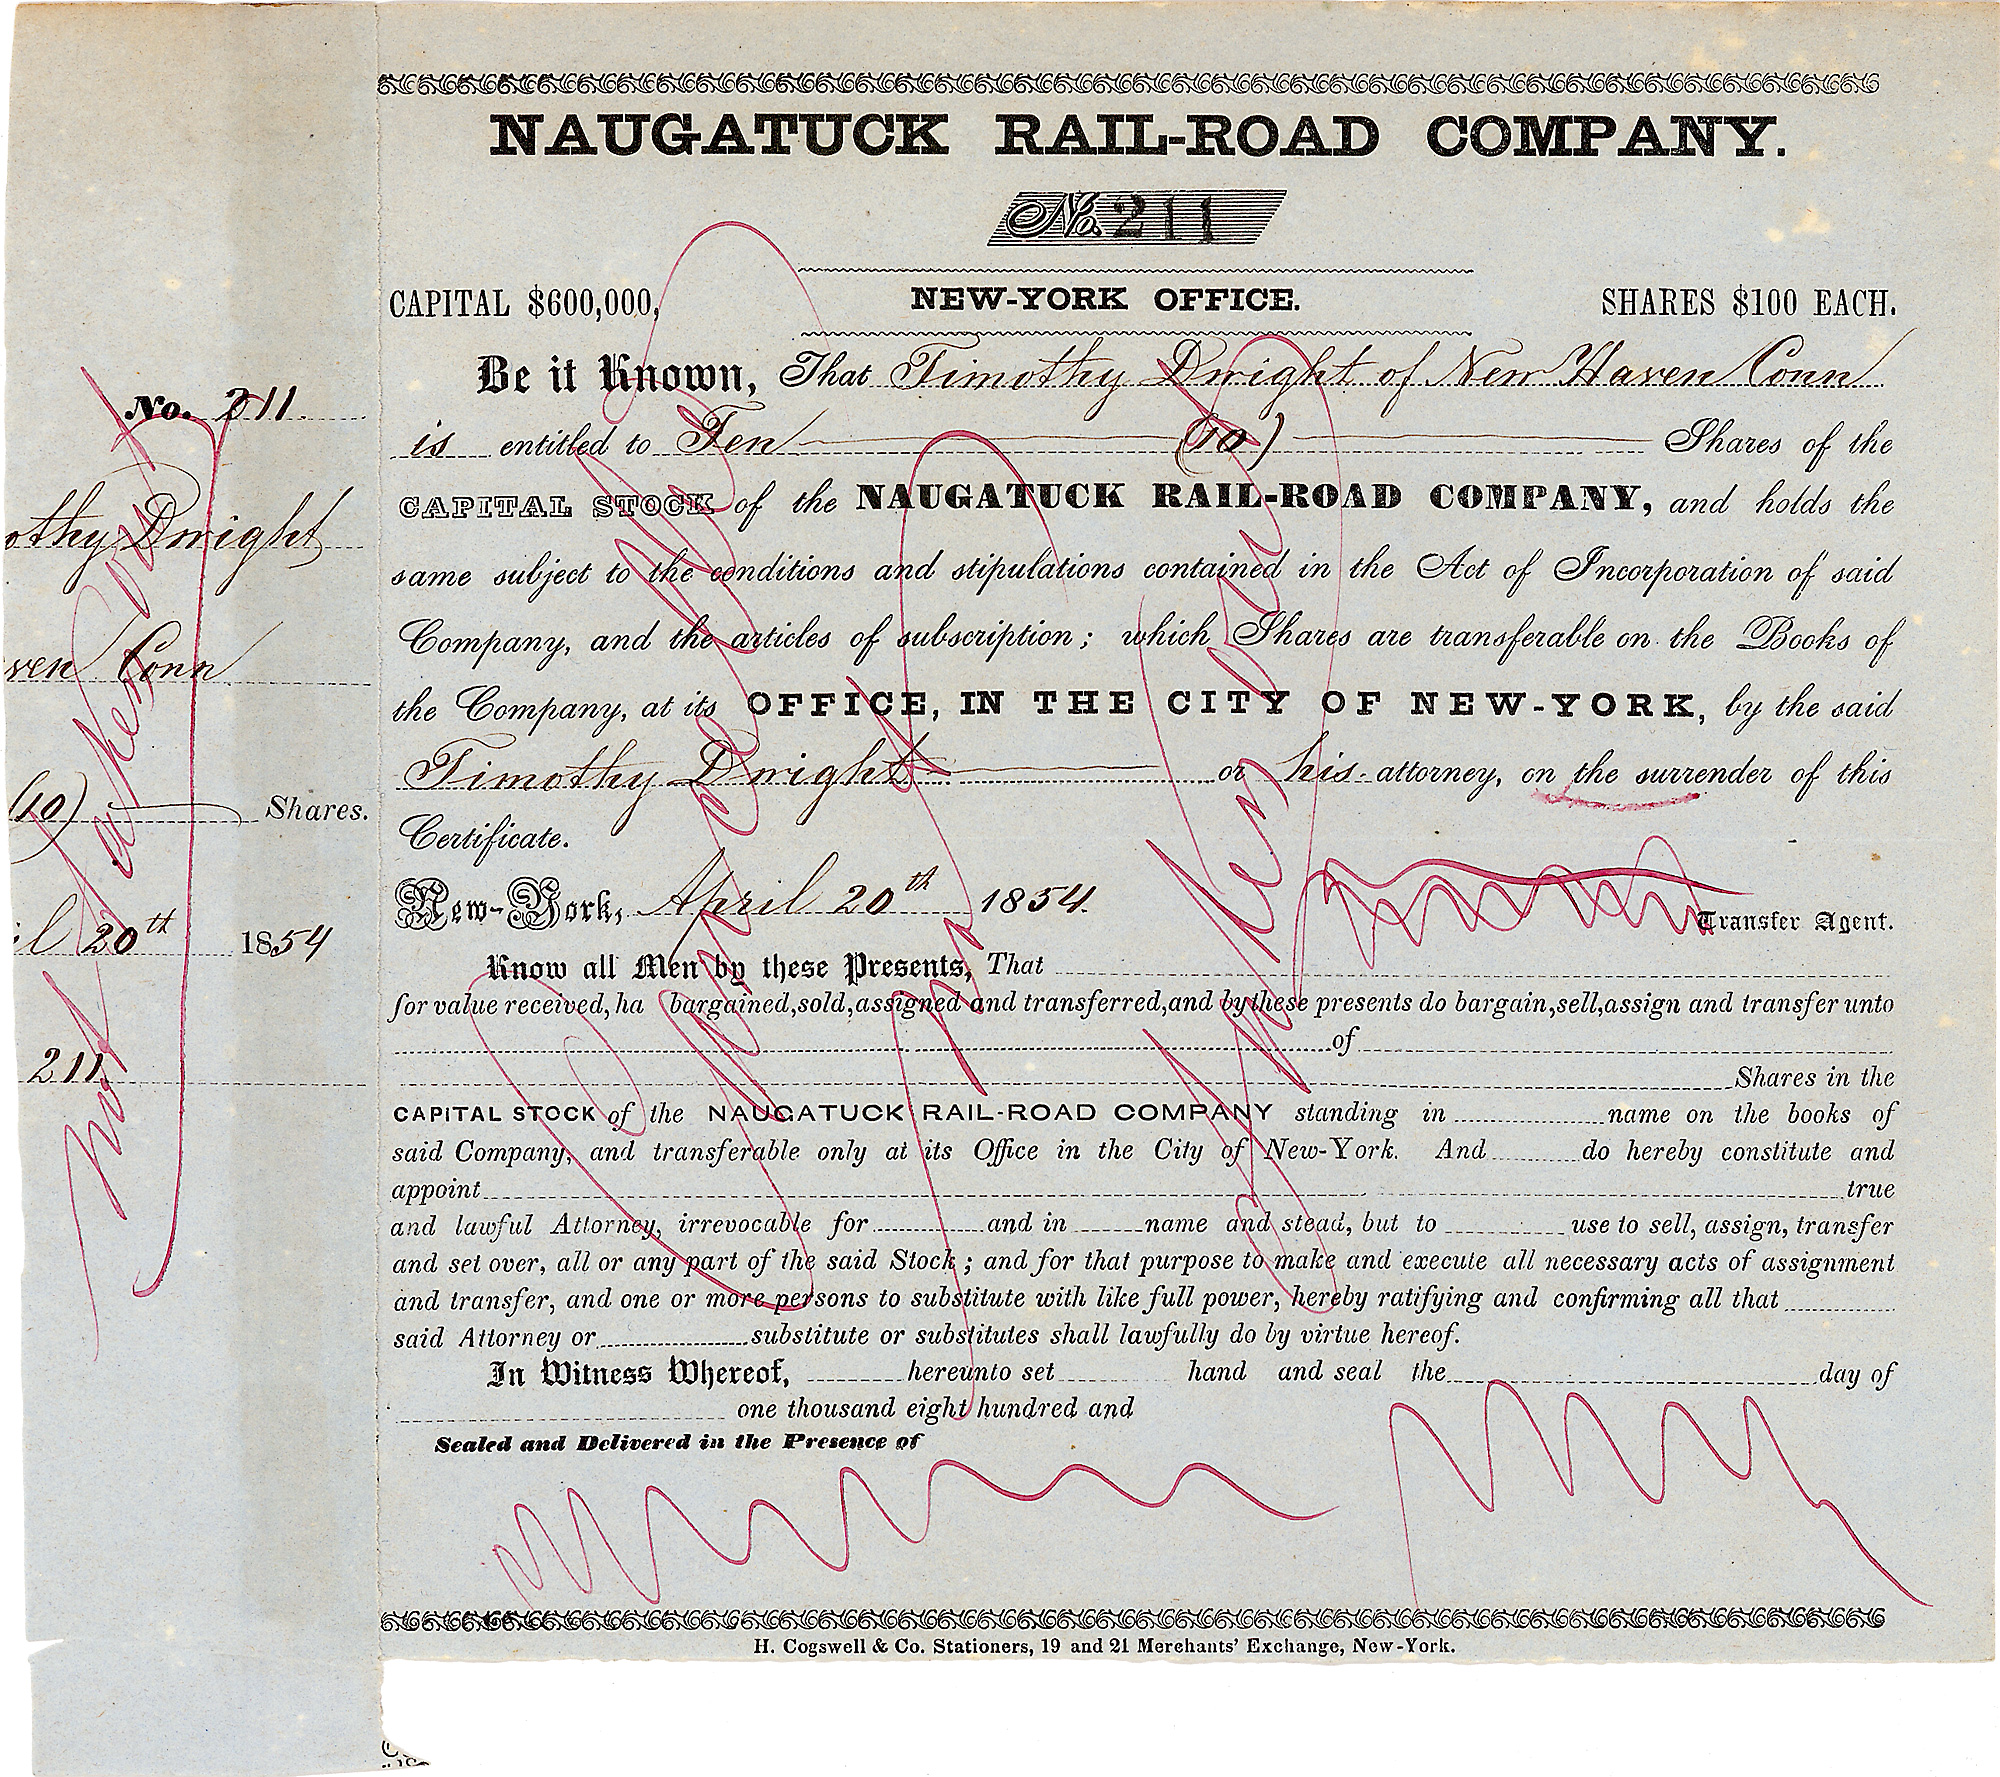 NAUGATUCK RAIL-ROAD COMPANY.
No. 211
CAPITAL $600,000,
NEW-YORK OFFICE.
SHARES $100 EACH.
Be it Known, That Timothy Dwight of New Haven Conn
is entitled to Ten (10) Shares of the
CAPITAL STOCK of the NAUGATUCK RAIL-ROAD COMPANY, and holds the
same subject to the conditions and stipulations contained in the Act of Incorporation of said
Company, and the articles of subscription; which Shares are transferable on the Books of
the Company, at its OFFICE, IN THE CITY OF NEW-YORK, by the said
Timothy Dwight or his attorney, on the surrender of this
Certificate.
New-York, April 20th 1854.
Transfer Agent.
Know all Men by these Presents, That
for value received, ha bargained, sold, assigned and transferred, and by these presents do bargain, sell, assign and transfer unto
of
Shares in the
CAPITAL STOCK of the NAUGATUCK RAIL-ROAD COMPANY standing in name on the books of
said Company, and transferable only at its Office in the City of New-York. And do hereby constitute and
appoint true
and lawful Attorney, irrevocable for and in name and stead, but to use to sell, assign, transfer
and set over, all or any part of the said Stock; and for that purpose to make and execute all necessary acts of assignment
and transfer, and one or more persons to substitute with like full power, hereby ratifying and confirming all that
said Attorney or substitute or substitutes shall lawfully do by virtue hereof.
In Witness Whereof, hereunto set hand and seal the day of
one thousand eight hundred and
Sealed and Delivered in the Presence of
H. Cogswell & Co. Stationers, 19 and 21 Merchants' Exchange, New-York.
No. 211.
othy Dwight
ven Conn
(10) Shares.
il 20th 1854
211
Not taken out
Cancelled
Not taken out